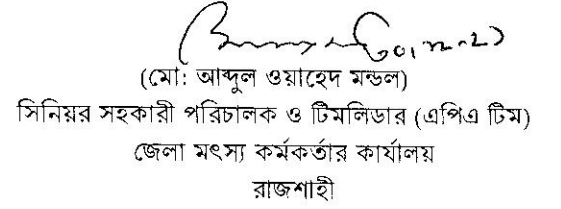 (মো: আব্দুল ওয়াহেদ মন্ডল)
সিনিয়র সহকারী পরিচালক ও টিমলিডার (এপিএ টিম)
জেলা মৎস্য কর্মকর্তার কার্যালয়
রাজশাহী